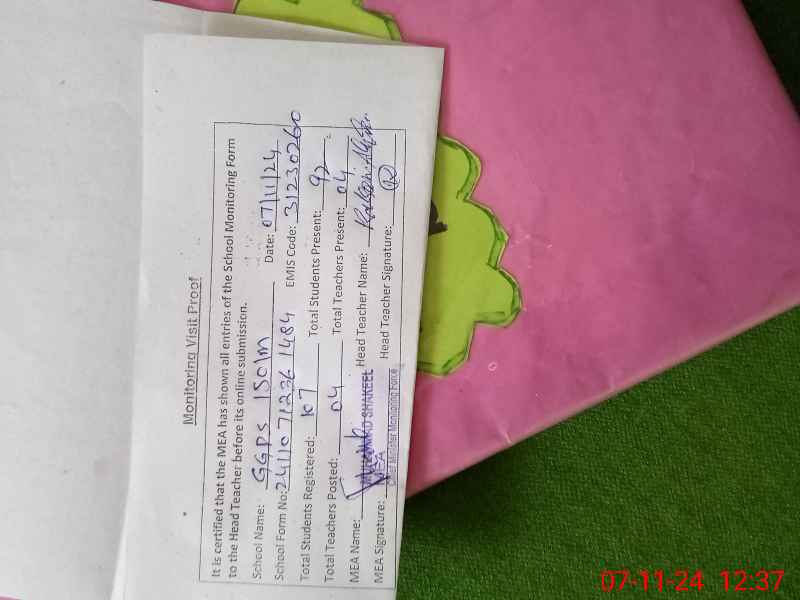 Monitoring Visit Proof
It is certified that the MEA has shown all entries of the School Monitoring Form
to the Head Teacher before its online submission.
School Name: GGPS 150/M Date: 07/11/24
School Form No: 2411071236 1484 EMIS Code: 31230260
Total Students Registered: 107 Total Students Present: 92
Total Teachers Posted: 04 Total Teachers Present: 04
MEA Name: SHAKEEL Head Teacher Name:
MEA Signature: MEA Head Teacher Signature:
Chief Minister Monitoring Force
07-11-24 12:37